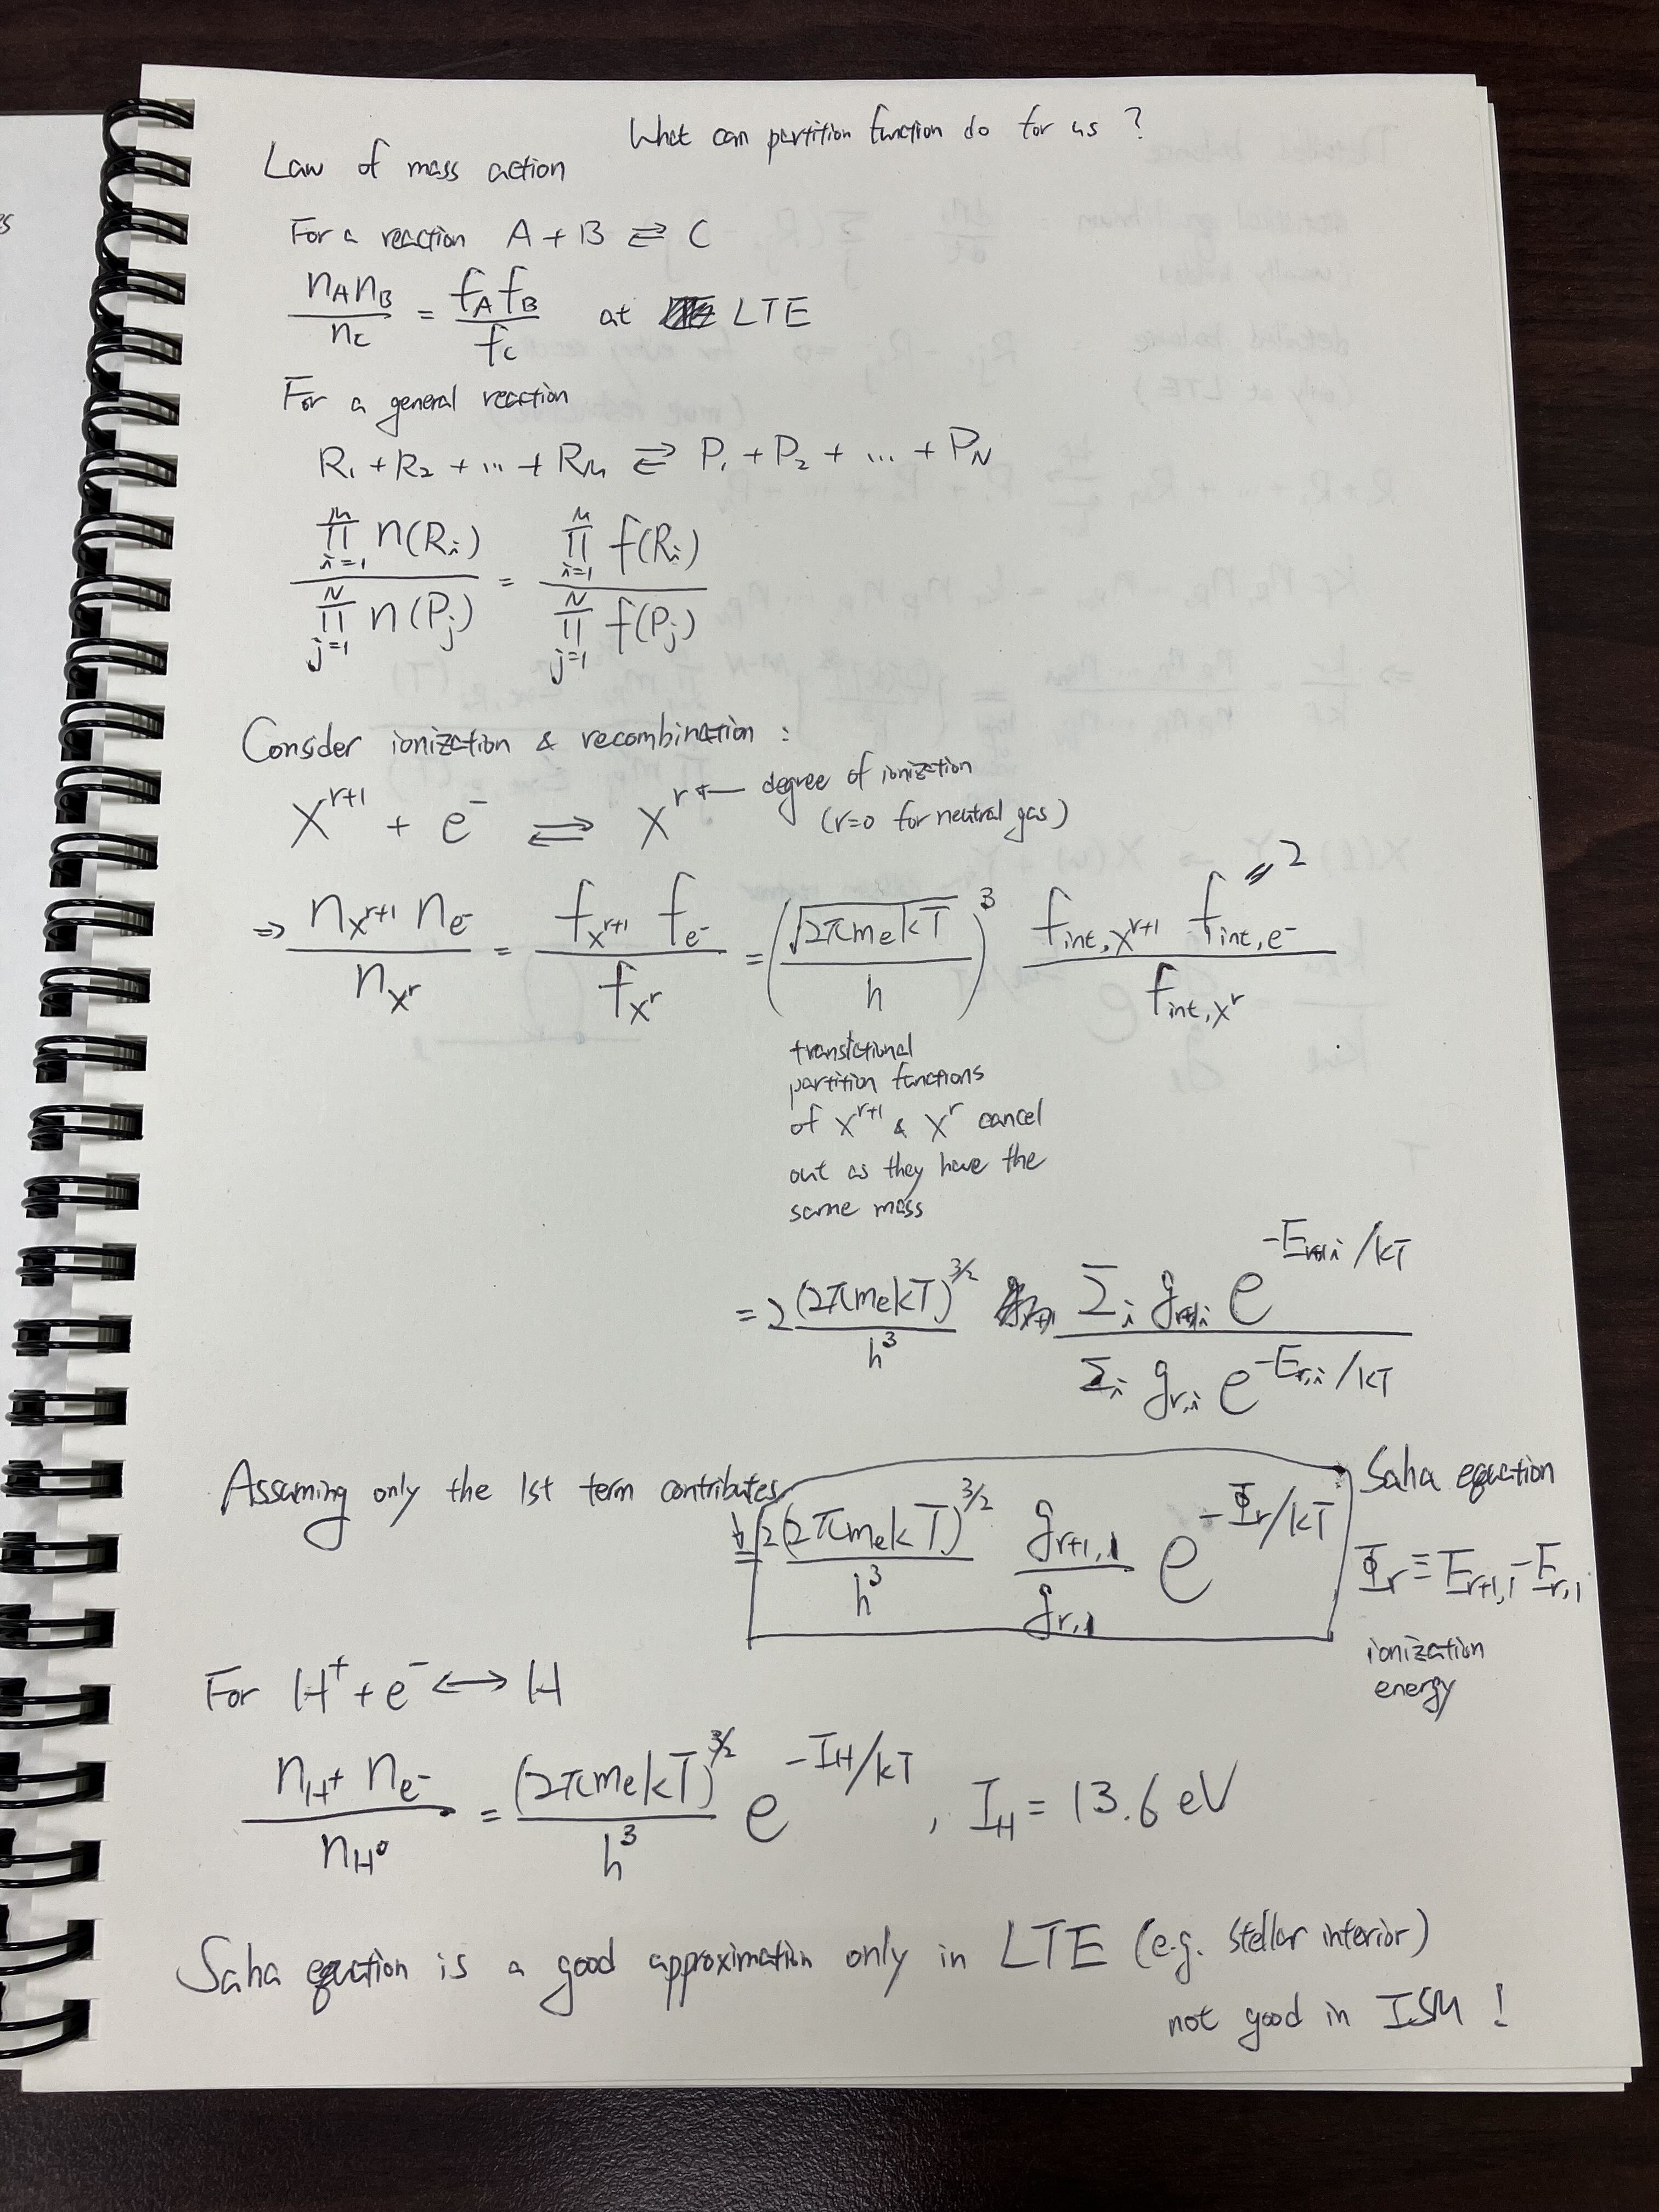 What can partition function do for us ?
Law of mass action
For a reaction A + B ⇄ C
n_A n_B / n_C = f_A f_B / f_C at LTE
For a general reaction
R_1 + R_2 + ... + R_M ⇄ P_1 + P_2 + ... + P_N
∏_{i=1}^{M} n(R_i) / ∏_{j=1}^{N} n(P_j) = ∏_{i=1}^{M} f(R_i) / ∏_{j=1}^{N} f(P_j)
Consider ionization & recombination :
X^{r+1} + e^- ⇌ X^r ← degree of ionization
(r=0 for neutral gas)
⇒ n_{X^{r+1}} n_{e^-} / n_{X^r} = f_{X^{r+1}} f_{e^-} / f_{X^r} = (√(2πm_e kT) / h)^3 f_{int,X^{r+1}} f_{int,e^-} / f_{int,X^r}
= 2
translational
partition functions
of X^{r+1} & X^r cancel
out as they have the
same mass
= 2 (2πm_e kT)^{3/2} / h^3 Σ_i g_{r+1,i} e^{-E_{r+1,i}/kT} / Σ_i g_{r,i} e^{-E_{r,i}/kT}
Assuming only the 1st term contributes
= 2 (2πm_e kT)^{3/2} / h^3 g_{r+1,1} / g_{r,1} e^{-Φ_r/kT}
Saha equation
Φ_r ≡ E_{r+1,1} - E_{r,1}
ionization
energy
For H^+ + e^- ⟷ H
n_{H^+} n_{e^-} / n_{H^0} = (2πm_e kT)^{3/2} / h^3 e^{-I_H/kT} , I_H = 13.6 eV
Saha equation is a good approximation only in LTE (e.g. stellar interior)
not good in ISM !